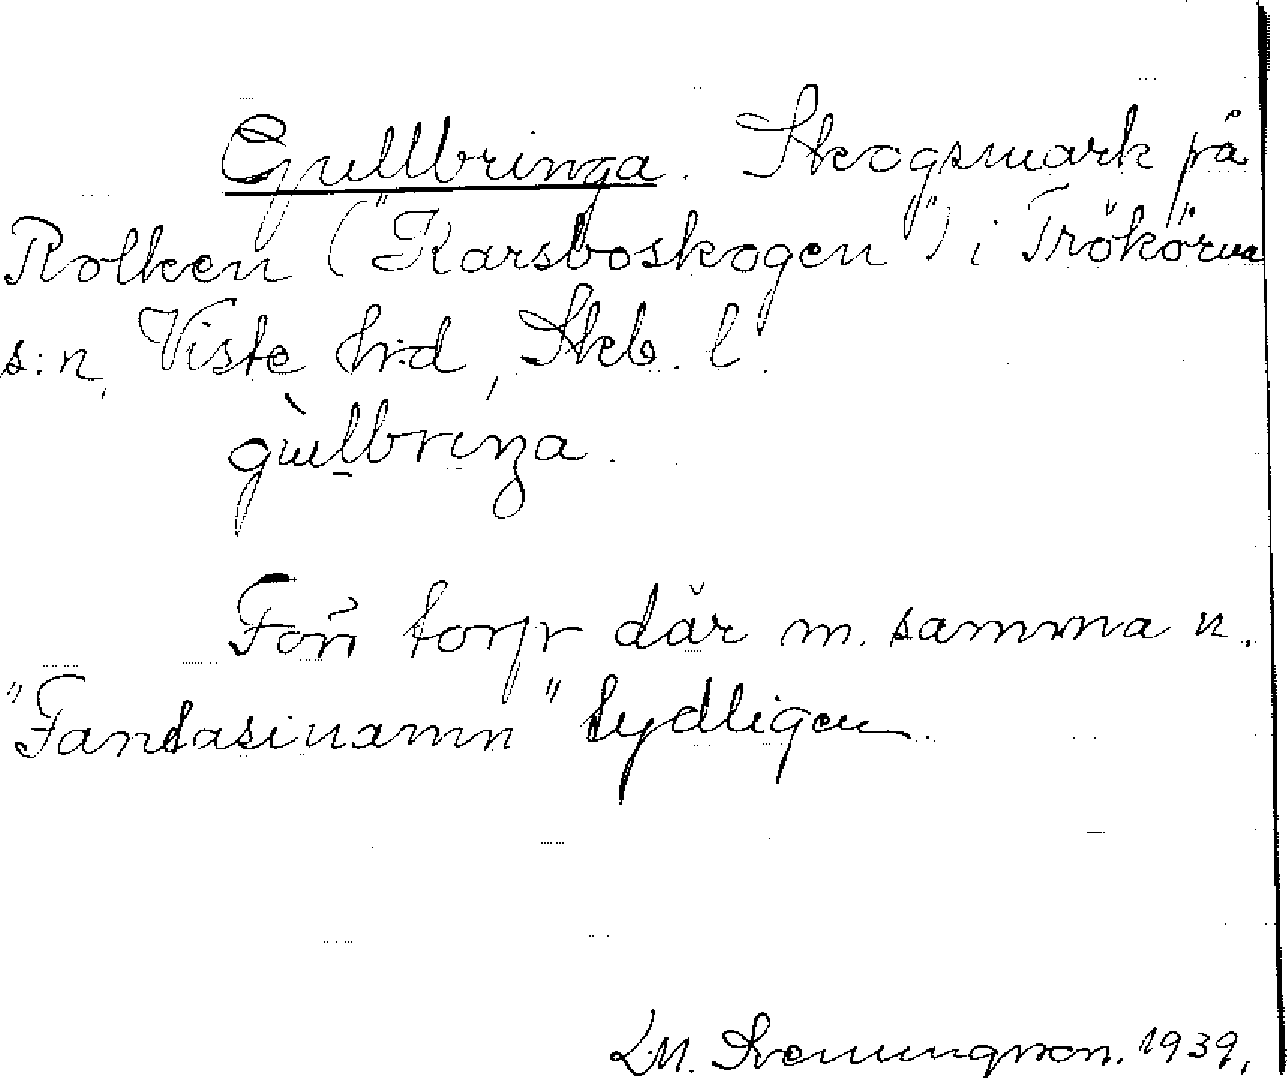 Gullbringa. Skogsmark på
Rolken ("Karsboskogen") i Trökörna
s:n, Viste hd, Skb. l.
gu̇lbriŋa.
Förr torp där m. samma n.
"Fantasinamn" tydligen.
1939.